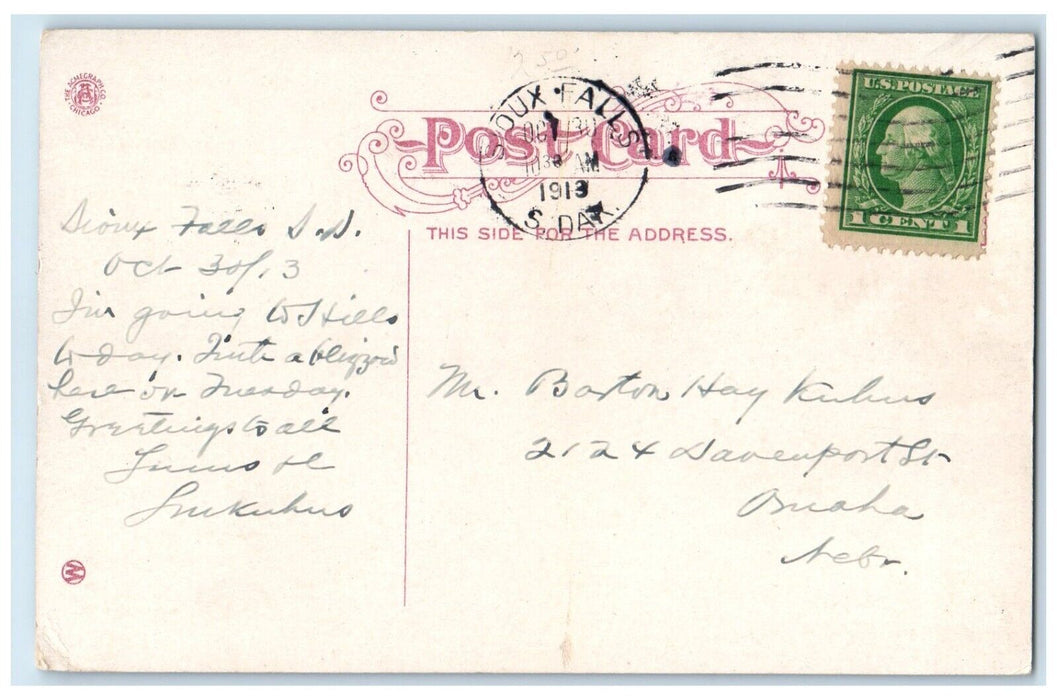 THE ACMEGRAPH CO.
CHICAGO
2.50
Post Card
SIOUX FALLS
OCT 30
10 30 AM
1913
S. DAK.
U.S. POSTAGE
1 CENT 1
THIS SIDE FOR THE ADDRESS.
Sioux Falls S.D.
Oct 30/13
I'm going to Hills
to day. a blizzard
here on Tuesday.
Greetings to all
Kuhns
W
Mr. Barton Hay Kuhns
2124 Davenport St
Omaha
Nebr.